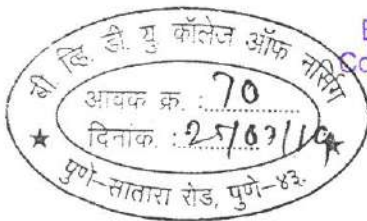 बी व्हि. डी. यु कॉलेज ऑफ नर्सिंग
आवक क्र. : 70
दिनांक : 25/03/19
★ पुणे-सातारा रोड, पुणे-४३. ★